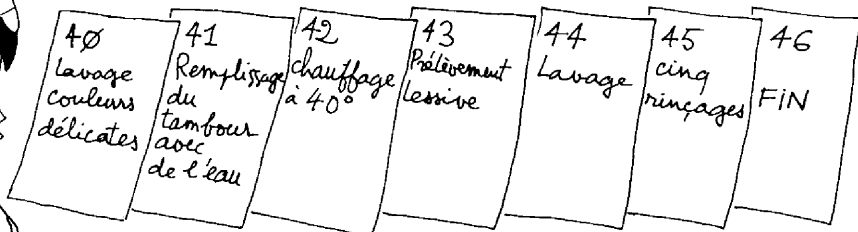 4Ø
Lavage
couleurs
délicates
41
Remplissage
du
tambour
avec
de l'eau
42
chauffage
à 40°
43
Prélèvement
lessive
44
Lavage
45
cinq
rinçages
46
FiN